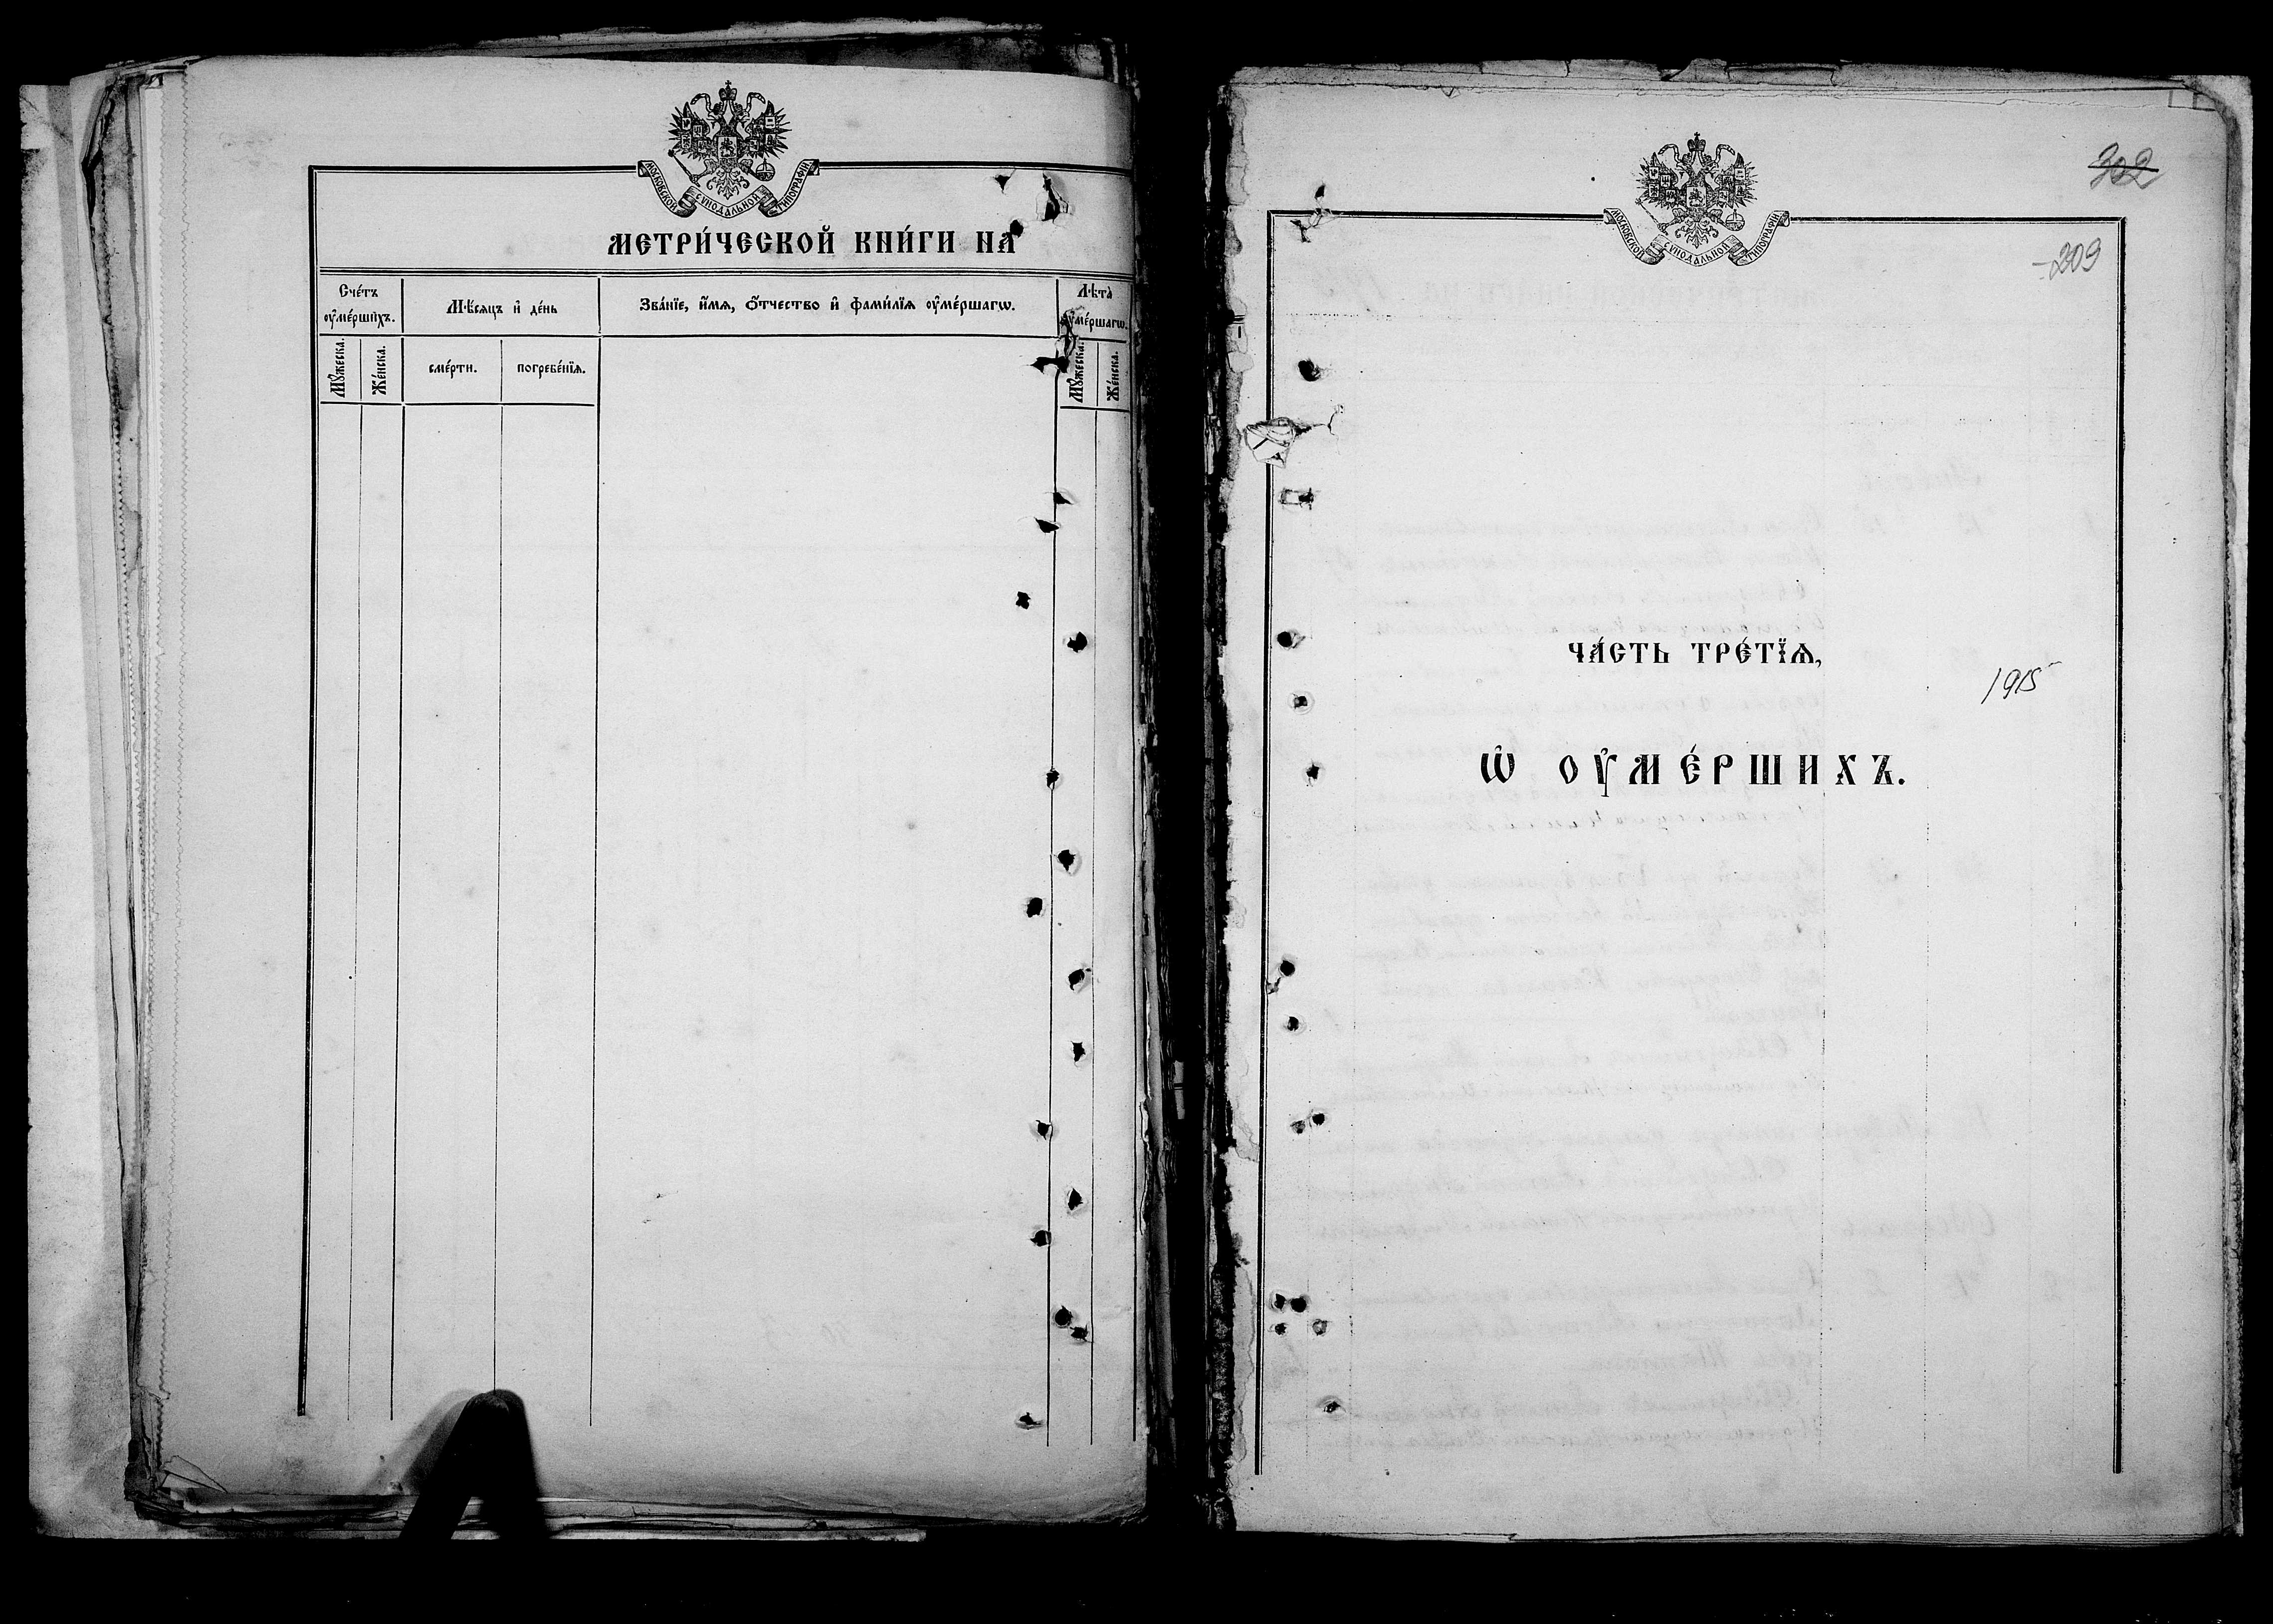 МОСКОВСКОЙ СѴНОДАЛЬНОЙ ТИПОГРАФІИ
МЕТРИ́ЧЕСКОЙ КНИ́ГИ НА
Сче́тъ ᲂу҆ме́ршихъ.
Мѣ́сяцъ и҆ де́нь
Зва́нїе, и҆́мѧ, ѻ҆́тчество и҆ фами́лїѧ ᲂу҆ме́ршагѡ.
Лѣ́та ᲂу҆ме́ршагѡ.
Мꙋ́жеска.
Же́нска.
сме́рти.
погребе́нїѧ.
Мꙋ́жеска.
Же́нска.
302
МОСКОВСКОЙ СѴНОДАЛЬНОЙ ТИПОГРАФІИ
209
ЧА́СТЬ ТРЕ́ТЇѦ,
1915
Ѡ҆ ОУ҆МЕ́РШИХЪ.